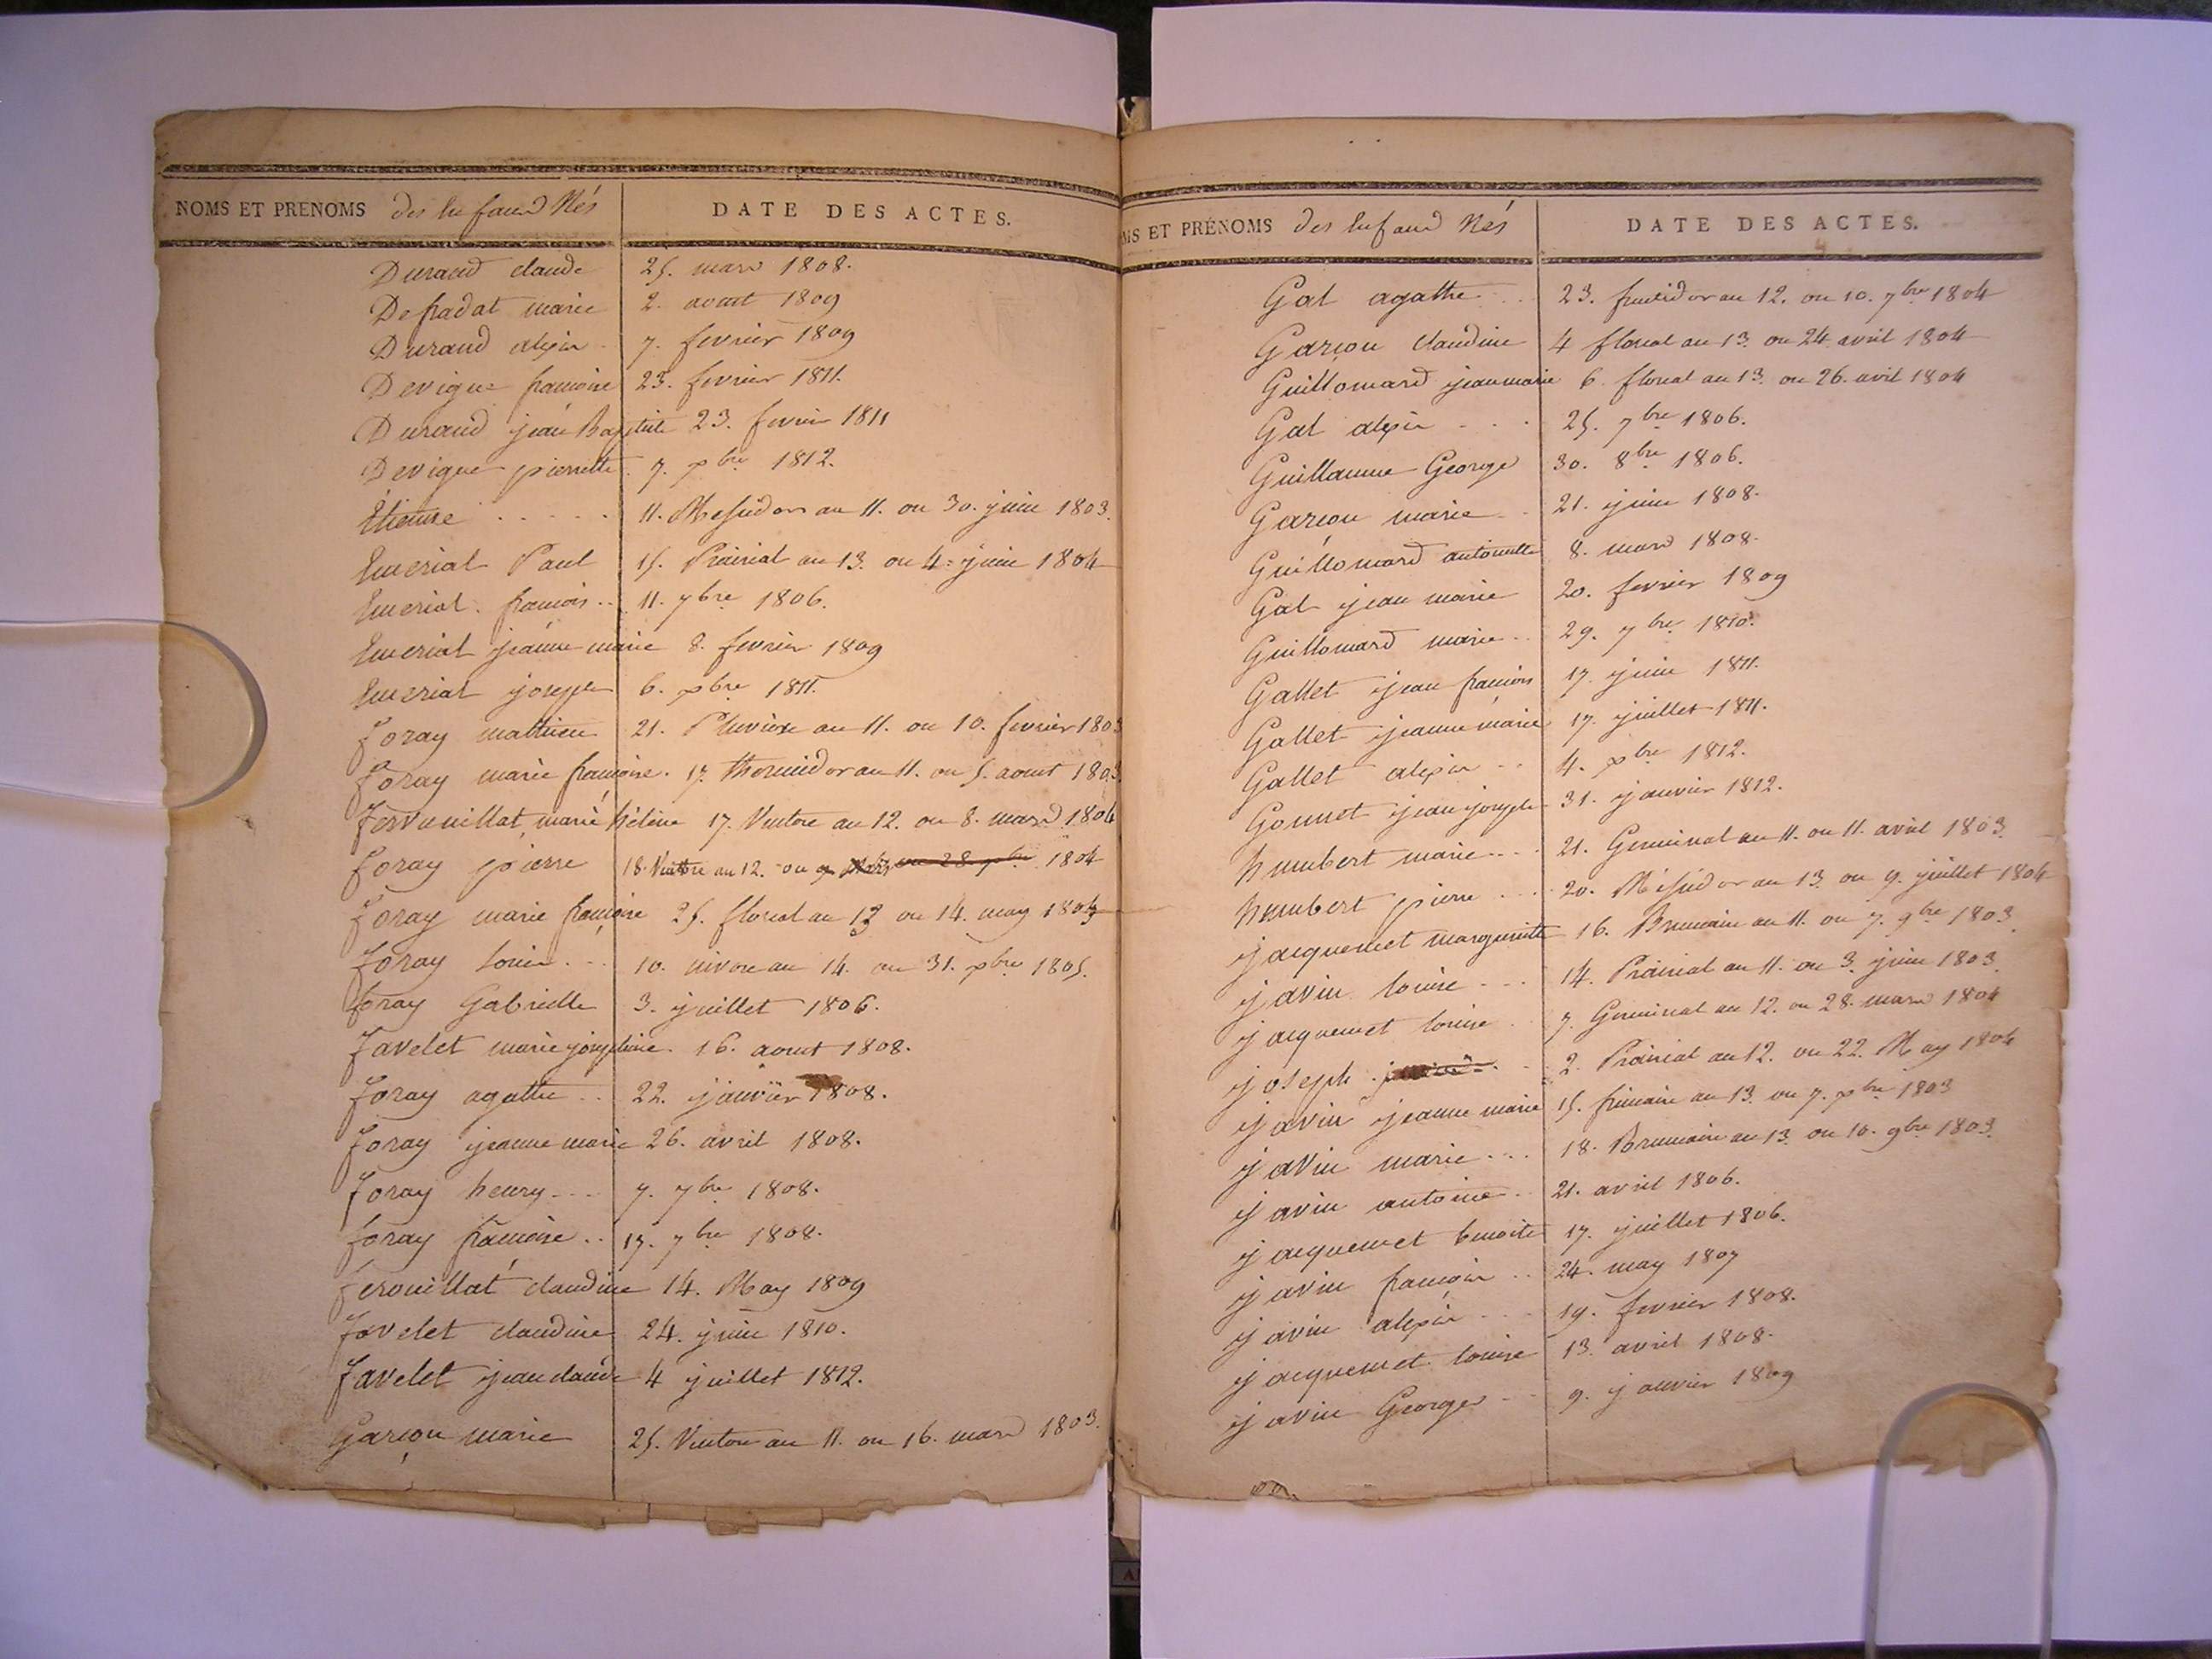 NOMS ET PRENOMS des Enfand Nés
DATE DES ACTES.
Durand claude 25. mars 1808.
Defradat marie 2. aoust 1809
Durand alexis 7. fevrier 1809
Devigne francoise 23. fevrier 1811.
Durand jean Baptiste 23. fevrier 1811
Devigne pierrette 7. xbre 1812.
Étienne ..... 11. Messidor an 11. ou 30. juin 1803.
Emeriat Paul 15. Prairial an 13. ou 4. juin 1804
Emeriat francois .. 11. 7bre 1806.
Emeriat jeanne marie 8. fevrier 1809
Emeriat joseph 6. xbre 1811.
foray mathieu 21. Pluviose an 11. ou 10. fevrier 1803
foray marie francoise. 17. thermidor an 11. ou 5. aoust 1803.
fervouillat marie hélène 17. Ventose an 12. ou 8. mars 1804
foray pierre 18. Ventose an 12. ou 9 Mars ou 28. xbre 1804
foray marie françoise 25. floreal an 13 ou 14. may 1804
foray louis ... 10. nivose an 14. ou 31. xbre 1805.
foray Gabrielle 3. juillet 1806.
favelet marie josephine. 16. aoust 1808.
foray agathe .. 22. janvier 1808.
foray jeanne marie 26. avril 1808.
foray henry ... 7. 7bre 1808.
foray françoise .. 17. 7bre 1808.
ferouillat claudine 14. May 1809
favelet claudine 24. juin 1810.
favelet jean claude 4 juillet 1812.
Garçon marie 25. Ventose an 11. ou 16. mars 1803.
MS ET PRÉNOMS des Enfand Nés
DATE DES ACTES.
Gal agathe .. 23. fructidor an 12. ou 10. 7bre 1804
Garçon claudine 4 floreal an 13. ou 24. avril 1804
Guillomard jean marie 6. floreal an 13. ou 26. avril 1804
Gal alexis ... 25. 7bre 1806.
Guillaume George 30. 8bre 1806.
Garçon marie .. 21. juin 1808.
Guillomard antoinette 8. mars 1808.
Gal jean marie 20. fevrier 1809
Guillomard marie .. 29. 7bre 1810.
Gallet jean françois 17. juin 1811.
Gallet jeanne marie 17. juillet 1811.
Gallet alexis .. 4. xbre 1812.
Gonnet jean joseph 31. janvier 1812.
humbert marie .... 21. Germinal an 11. ou 11. avril 1803.
humbert pierre ... 20. Messidor an 13. ou 9. juillet 1804
jacquemet marguerite 16. Brumaire an 11. ou 7. 9bre 1803.
javin louise ... 14. Prairial an 11. ou 3. juin 1803.
jacquemet louise . 7. Germinal an 12. ou 28. mars 1804
joseph 2. Prairial an 12. ou 22. May 1804
javin jeanne marie 15. frimaire an 13. ou 7. xbre 1803
javin marie ... 18. Brumaire an 13. ou 10. 9bre 1803.
javin antoine .. 21. avril 1806.
jacquemet benoite 17. juillet 1806.
javin françois .. 24. may 1807
javin alexis ... 19. fevrier 1808.
jacquemet louise 13. avril 1808.
javin George .. 9. janvier 1809